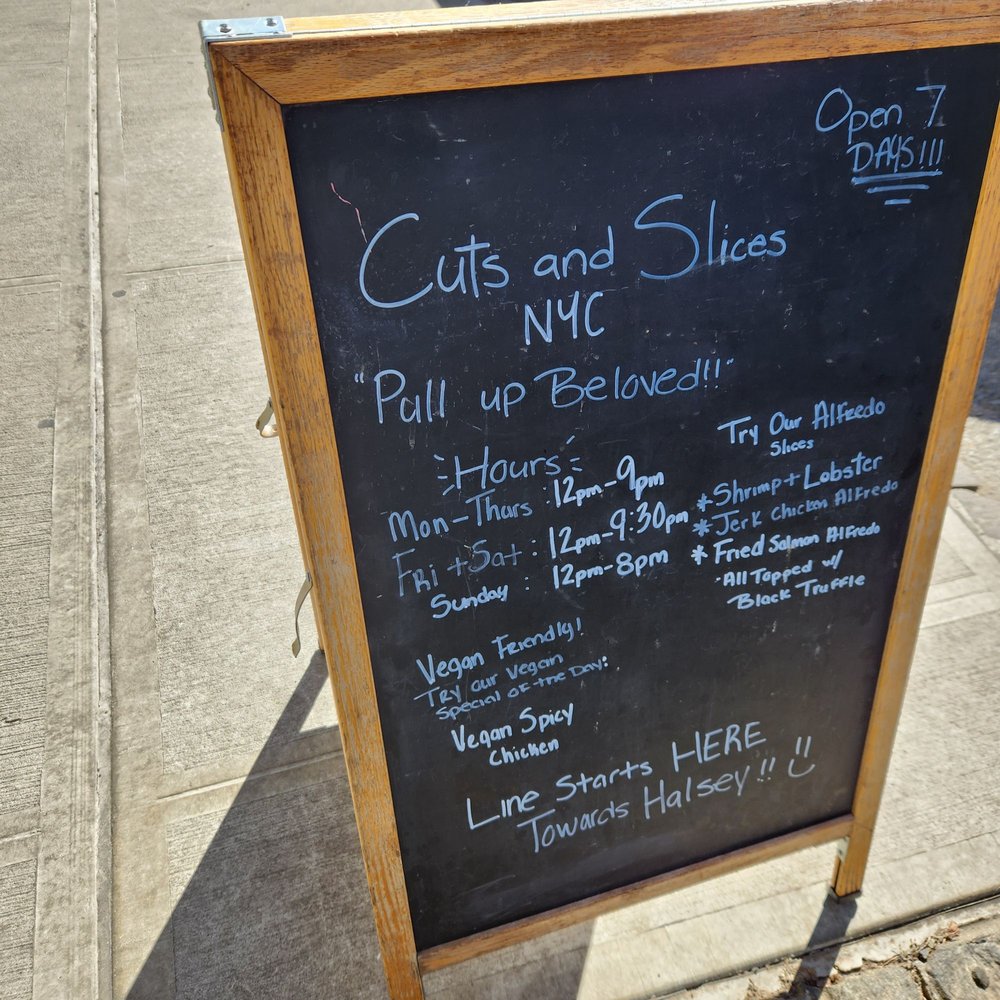 Open 7
DAYS!!!
Cuts and Slices
NYC
"Pull up Beloved!!"
Hours
Mon-Thurs : 12pm-9pm
Fri + Sat : 12pm-9:30pm
Sunday : 12pm-8pm
Try Our Alfredo
Slices
*Shrimp + Lobster
*Jerk Chicken Alfredo
*Fried Salmon Alfredo
·All Topped w/
Black Truffle
Vegan Friendly!
Try our Vegan
Special of the Day:
Vegan Spicy
Chicken
Line Starts HERE
Towards Halsey!!